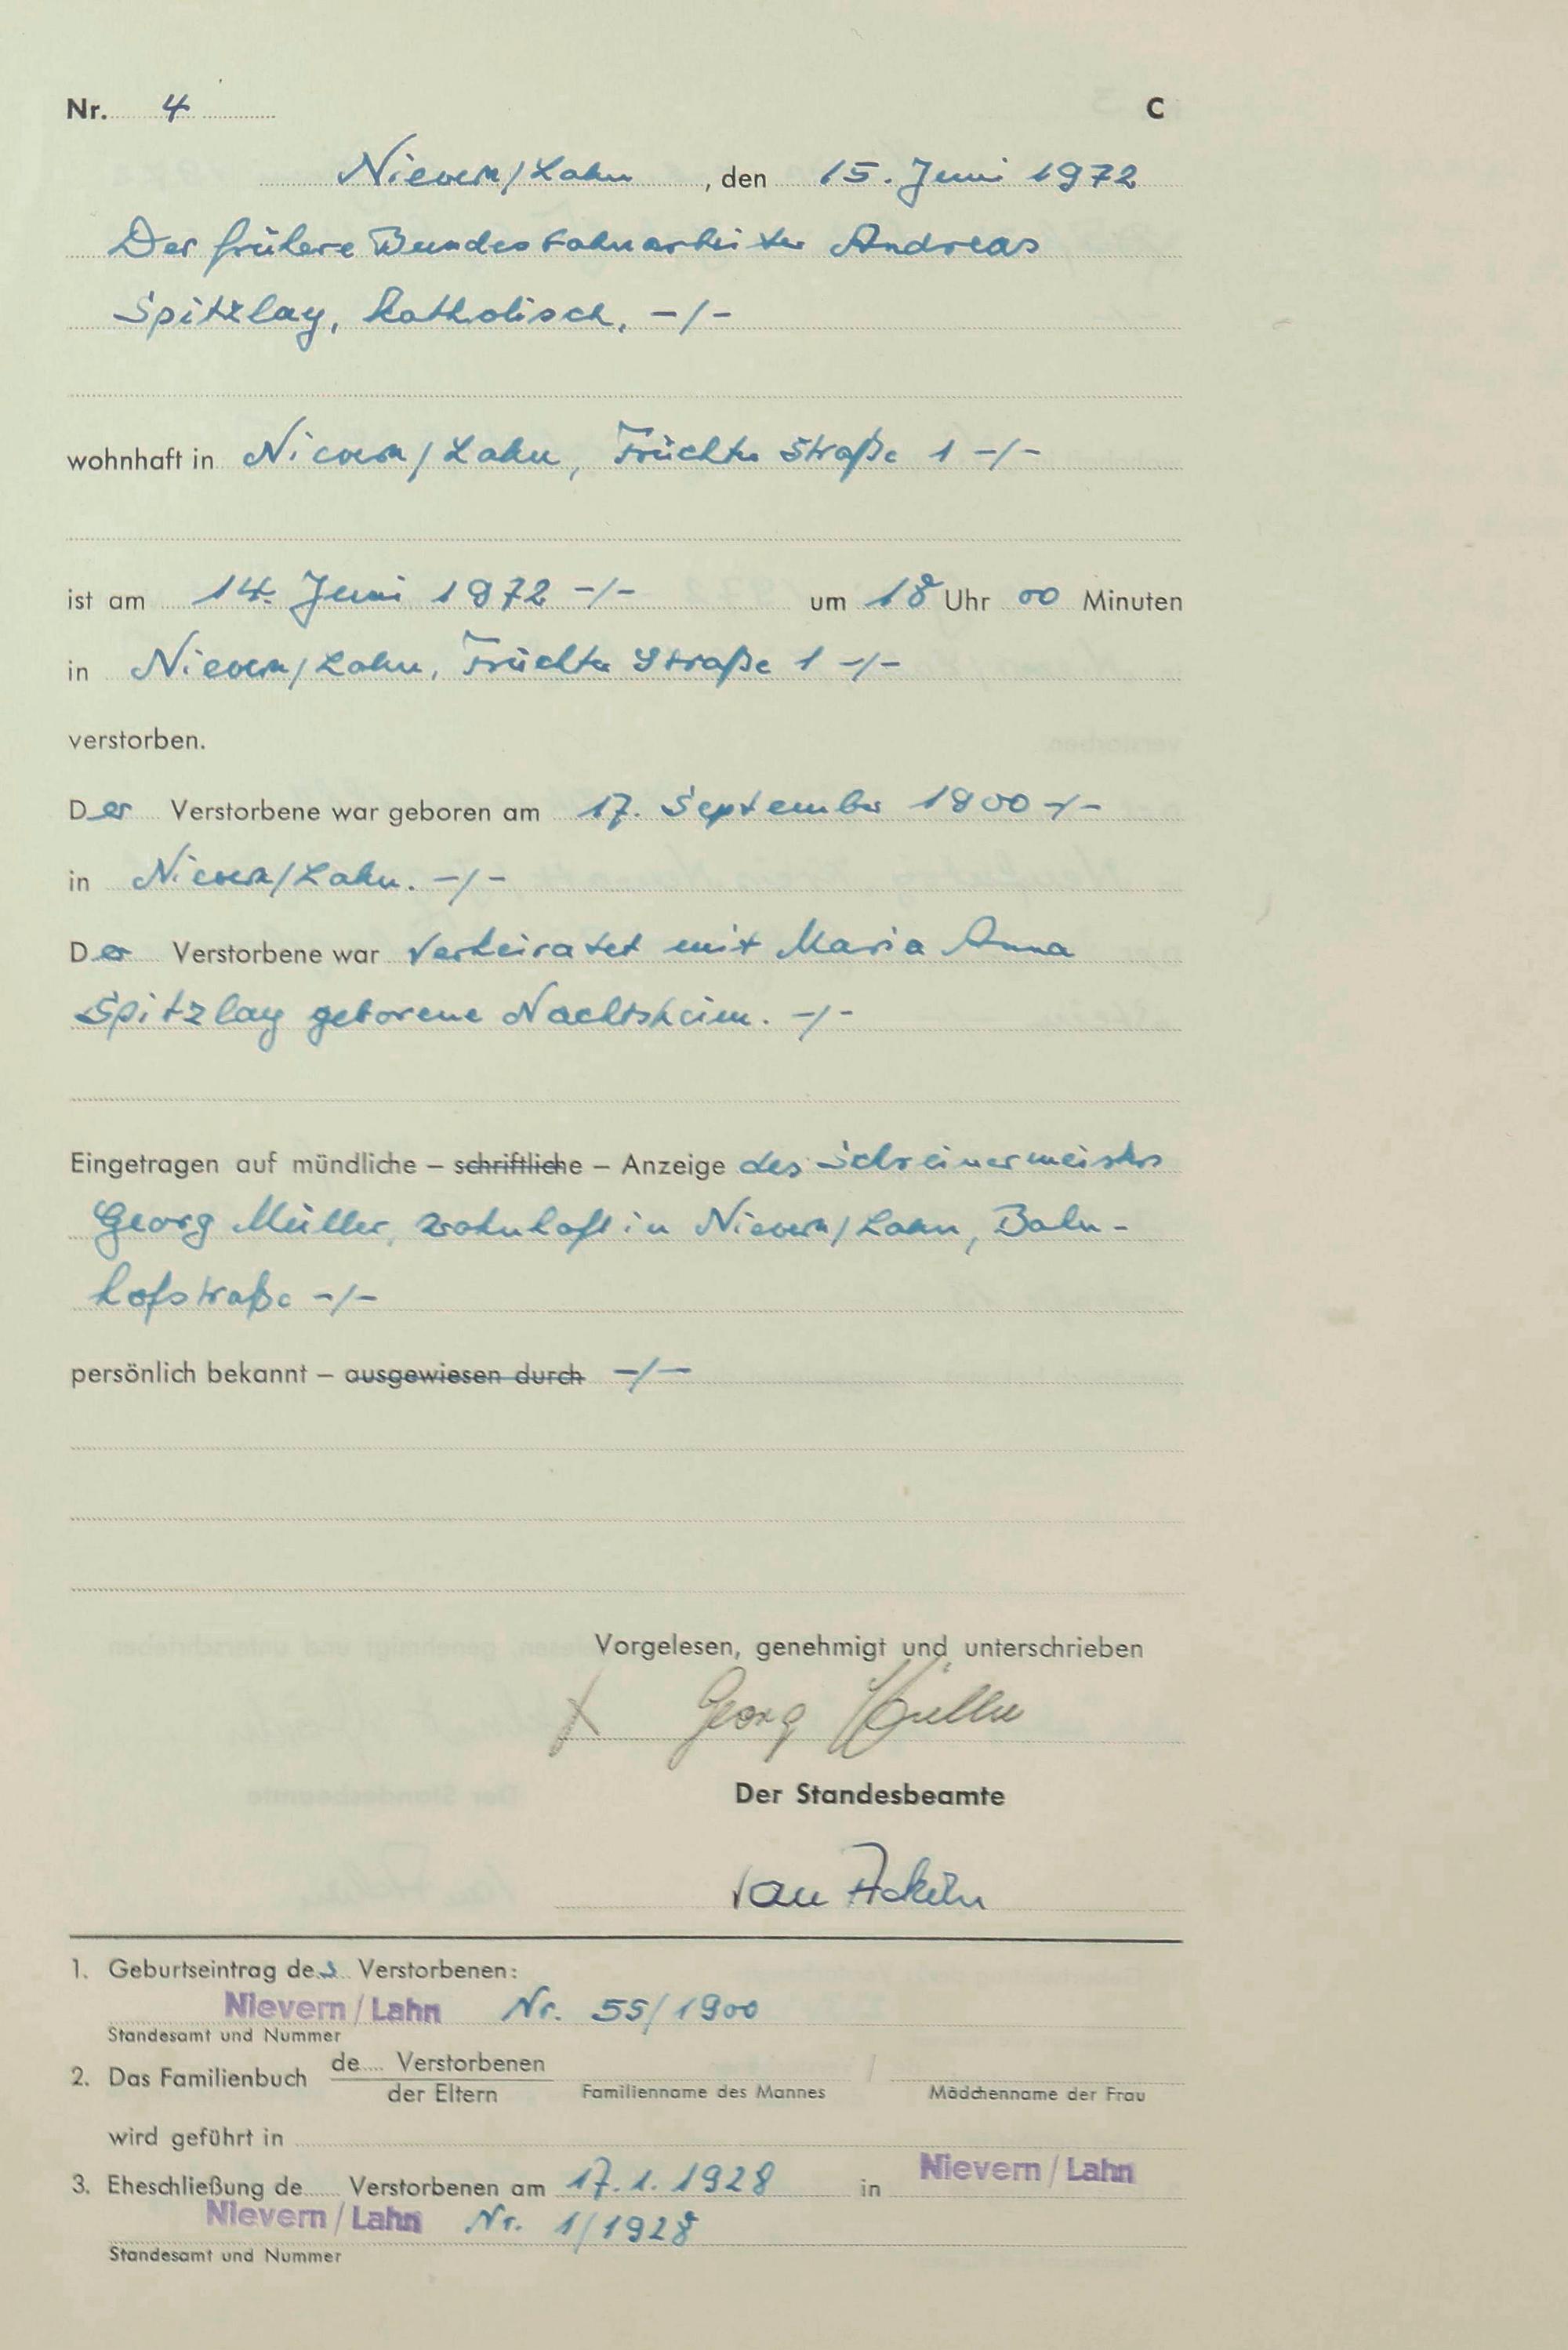 Nr. 4 C
Nievern/Lahn, den 15. Juni 1972
Der frühere Bundesbahnarbeiter Andreas
Spitzlay, katholisch, -/-
wohnhaft in Nievern/Lahn, Früchter Straße 1 -/-
ist am 14. Juni 1972 -/- um 18 Uhr 00 Minuten
in Nievern/Lahn, Früchter Straße 1 -/-
verstorben.
Der Verstorbene war geboren am 17. September 1900 -/-
in Nievern/Lahn. -/-
Der Verstorbene war verheiratet mit Maria Anna
Spitzlay geborene Nachtsheim. -/-
Eingetragen auf mündliche – schriftliche – Anzeige des Schreinermeisters
Georg Müller, wohnhaft in Nievern/Lahn, Bahn-
hofstraße -/-
persönlich bekannt – ausgewiesen durch -/-
Vorgelesen, genehmigt und unterschrieben
X Georg Müller
Der Standesbeamte
van
1. Geburtseintrag des Verstorbenen:
Nievern/Lahn Nr. 55/1900
Standesamt und Nummer
2. Das Familienbuch de.... Verstorbenen
der Eltern Familienname des Mannes / Mädchenname der Frau
wird geführt in
3. Eheschließung de.... Verstorbenen am 17.1.1928 in Nievern/Lahn
Nievern/Lahn Nr. 1/1928
Standesamt und Nummer